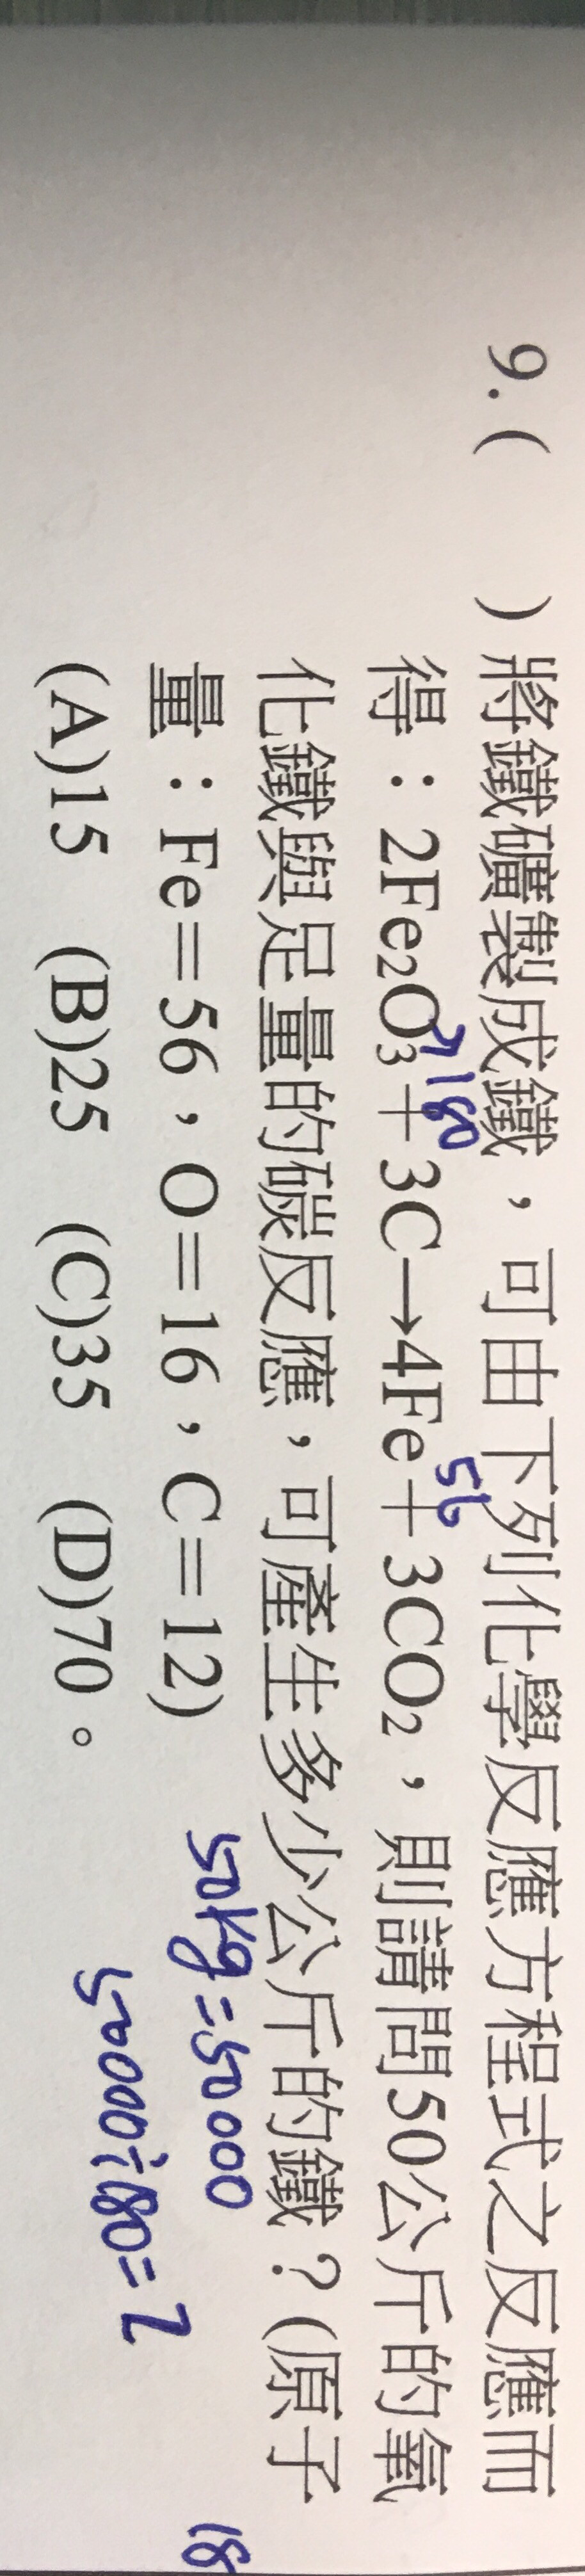 9. (　　) 將鐵礦製成鐵，可由下列化學反應方程式之反應而
180
56
得：2Fe₂O₃＋3C→4Fe＋3CO₂，則請問50公斤的氧
化鐵與足量的碳反應，可產生多少公斤的鐵？(原子
量：Fe＝56，O＝16，C＝12)
50kg=50000
18
(A)15 (B)25 (C)35 (D)70。
50000÷180=